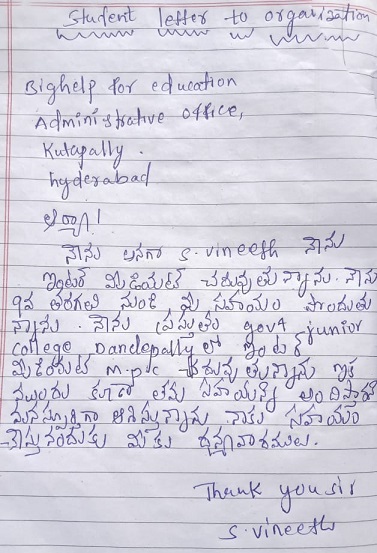 Student letter to organisation
Bighelp for education
Administrative office,
Kukapally.
hyderabad
ఆర్యా!
నేను అనగా s. vineeth నేను
ఇంటర్ మీడియట్ చదువుతున్నాను. నేను
9వ తరగతి నుండి మీ సహాయం పొందుతు
న్నాను. నేను ప్రస్తుతం govt junior
college Dandepally లో ఇంటర్
మీడియట్ m.p.c చదువుతున్నాను ఇక
కూడా తమ సహాయాన్ని అందిస్తారని
మనస్ఫూర్తిగా ఆశిస్తున్నాను నాకు సహాయం
చేస్తునందుకు మీకు ధన్యవాదములు.
Thank you sir
s. vineeth